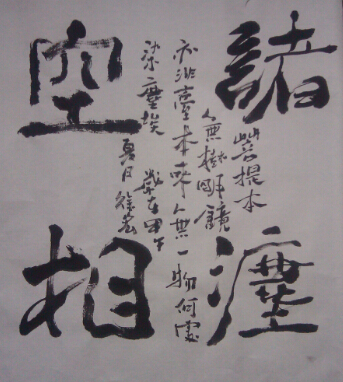 諸灋
空相
菩提本
無樹明鏡
亦非臺本來無一物何處
染塵埃 歲在甲午
夏月